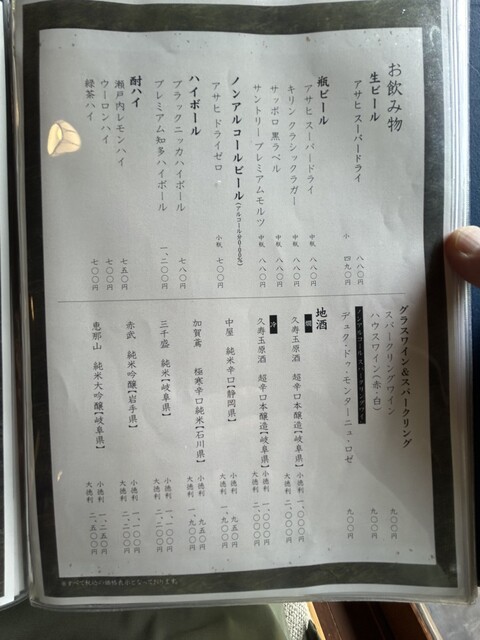 お飲み物
生ビール
アサヒ スーパードライ 八八〇円
小 四九〇円
瓶ビール
アサヒ スーパードライ 中瓶 八八〇円
キリン クラシックラガー 中瓶 八八〇円
サッポロ 黒ラベル 中瓶 八八〇円
サントリー プレミアムモルツ 中瓶 八八〇円
ノンアルコールビール(アルコール分0.00%)
アサヒ ドライゼロ 小瓶 七〇〇円
ハイボール
ブラックニッカハイボール 七八〇円
プレミアム知多ハイボール 一、二〇〇円
酎ハイ
瀬戸内レモンハイ 七五〇円
ウーロンハイ 七〇〇円
緑茶ハイ 七〇〇円
グラスワイン&スパークリング
スパークリングワイン 九〇〇円
ハウスワイン(赤・白) 九〇〇円
ノンアルコールスパークリングワイン
デュク・ドゥ・モンターニュ・ロゼ 九〇〇円
地酒
燗
久寿玉原酒 超辛口本醸造【岐阜県】 小徳利 一、〇〇〇円
大徳利 二、〇〇〇円
冷
久寿玉原酒 超辛口本醸造【岐阜県】 小徳利 一、〇〇〇円
大徳利 二、〇〇〇円
中屋 純米辛口【静岡県】 小徳利 九五〇円
大徳利 一、九〇〇円
加賀鳶 極寒辛口純米【石川県】 小徳利 九五〇円
大徳利 一、九〇〇円
三千盛 純米【岐阜県】 小徳利 一、一〇〇円
大徳利 二、二〇〇円
赤武 純米吟醸【岩手県】 小徳利 一、一〇〇円
大徳利 二、二〇〇円
恵那山 純米大吟醸【岐阜県】 小徳利 一、二五〇円
大徳利 二、五〇〇円
※すべて税込の価格表示となっております。